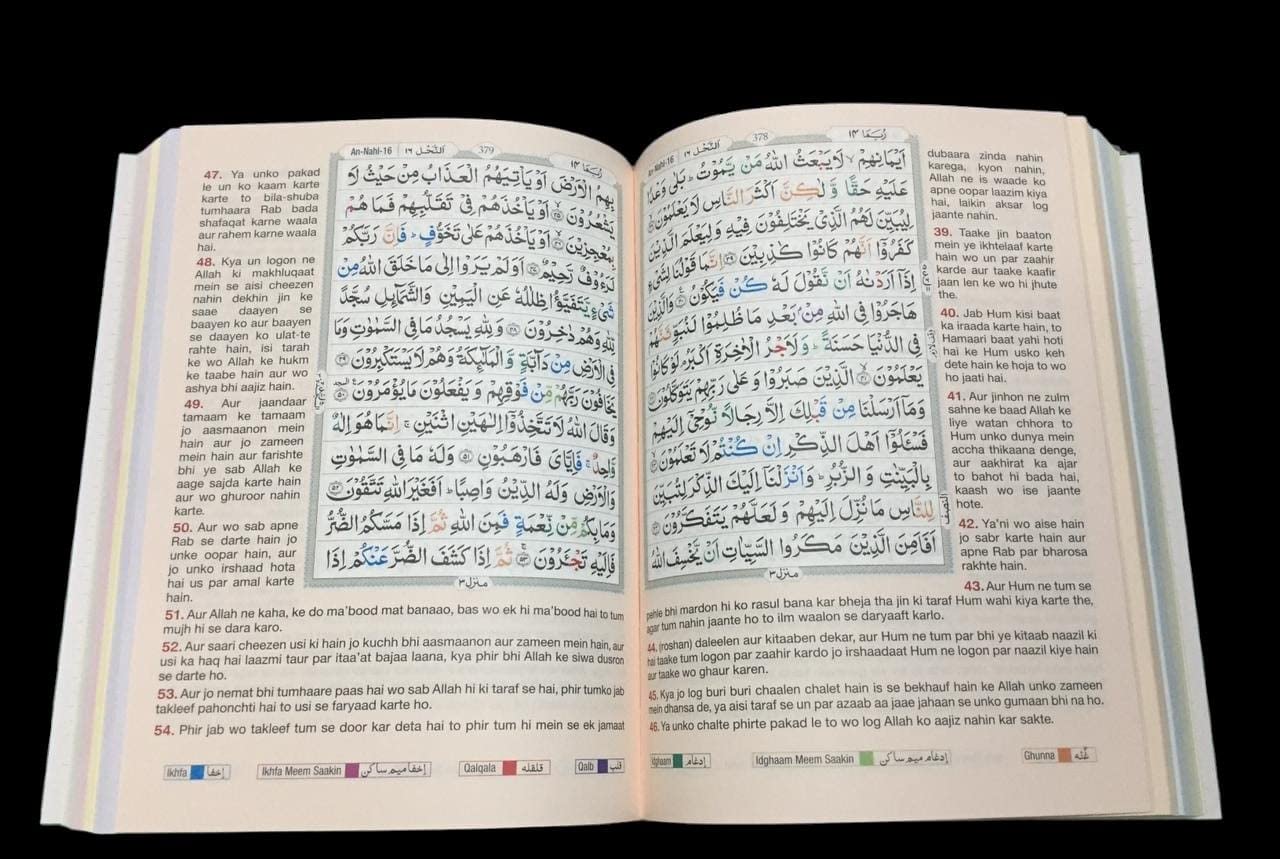 An-Nahl-16 اَلنَّحْل ١٦
378
رُبَمَا ١٤
اَيْمَانِهِمْ ۙ لَا يَبْعَثُ اللّٰهُ مَنْ يَّمُوْتُ ؕ بَلٰى وَعْدًا
عَلَيْهِ حَقًّا وَّلٰكِنَّ اَكْثَرَ النَّاسِ لَا يَعْلَمُوْنَ ۙ‏﴿۳۸﴾
لِيُبَيِّنَ لَهُمُ الَّذِىْ يَخْتَلِفُوْنَ فِيْهِ وَلِيَعْلَمَ الَّذِيْنَ
كَفَرُوْۤا اَنَّهُمْ كَانُوْا كٰذِبِيْنَ ﴿۳۹﴾ اِنَّمَا قَوْلُنَا لِشَىْءٍ
اِذَاۤ اَرَدْنٰهُ اَنْ نَّقُوْلَ لَهٗ كُنْ فَيَكُوْنُ ﴿۴۰﴾ وَالَّذِيْنَ
هَاجَرُوْا فِى اللّٰهِ مِنْۢ بَعْدِ مَا ظُلِمُوْا لَنُبَوِّئَنَّهُمْ
فِى الدُّنْيَا حَسَنَةً ؕ وَلَاَجْرُ الْاٰخِرَةِ اَكْبَرُ ۘ لَوْ كَانُوْا
يَعْلَمُوْنَ ۙ‏﴿۴۱﴾ الَّذِيْنَ صَبَرُوْا وَعَلٰى رَبِّهِمْ يَتَوَكَّلُوْنَ ﴿۴۲﴾
وَمَاۤ اَرْسَلْنَا مِنْ قَبْلِكَ اِلَّا رِجَالًا نُّوْحِىْۤ اِلَيْهِمْ
فَسْئَلُوْۤا اَهْلَ الذِّكْرِ اِنْ كُنْتُمْ لَا تَعْلَمُوْنَ ۙ‏﴿۴۳﴾
بِالْبَيِّنٰتِ وَالزُّبُرِ ؕ وَاَنْزَلْنَاۤ اِلَيْكَ الذِّكْرَ لِتُبَيِّنَ
لِلنَّاسِ مَا نُزِّلَ اِلَيْهِمْ وَلَعَلَّهُمْ يَتَفَكَّرُوْنَ ﴿۴۴﴾
اَفَاَمِنَ الَّذِيْنَ مَكَرُوا السَّيِّاٰتِ اَنْ يَّخْسِفَ اللّٰهُ
النصف
منزل ٣
dubaara zinda nahin
karega, kyon nahin,
Allah ne is waade ko
apne oopar laazim kiya
hai, laikin aksar log
jaante nahin.
39. Taake jin baaton
mein ye ikhtelaaf karte
hain wo un par zaahir
karde aur taake kaafir
jaan len ke wo hi jhute
the.
40. Jab Hum kisi baat
ka iraada karte hain, to
Hamaari baat yahi hoti
hai ke Hum usko keh
dete hain ke hoja to wo
ho jaati hai.
41. Aur jinhon ne zulm
sahne ke baad Allah ke
liye watan chhora to
Hum unko dunya mein
accha thikaana denge,
aur aakhirat ka ajar
to bahot hi bada hai,
kaash wo ise jaante
hote.
42. Ya'ni wo aise hain
jo sabr karte hain aur
apne Rab par bharosa
rakhte hain.
43. Aur Hum ne tum se
pehle bhi mardon hi ko rasul bana kar bheja tha jin ki taraf Hum wahi kiya karte the,
agar tum nahin jaante ho to ilm waalon se daryaaft karlo.
44. (roshan) daleelen aur kitaaben dekar, aur Hum ne tum par bhi ye kitaab naazil ki
hai taake tum logon par zaahir kardo jo irshaadaat Hum ne logon par naazil kiye hain
aur taake wo ghaur karen.
45. Kya jo log buri buri chaalen chalet hain is se bekhauf hain ke Allah unko zameen
mein dhansa de, ya aisi taraf se un par azaab aa jaae jahaan se unko gumaan bhi na ho.
46. Ya unko chalte phirte pakad le to wo log Allah ko aajiz nahin kar sakte.
Idghaam إدغام
Idghaam Meem Saakin إدغام ميم ساكن
Ghunna غُنّه
An-Nahl-16 اَلنَّحْل ١٦
379
رُبَمَا ١٤
بِهِمُ الْاَرْضَ اَوْ يَاْتِيَهُمُ الْعَذَابُ مِنْ حَيْثُ لَا
يَشْعُرُوْنَ ۙ‏﴿۴۵﴾ اَوْ يَاْخُذَهُمْ فِىْ تَقَلُّبِهِمْ فَمَا هُمْ
بِمُعْجِزِيْنَ ۙ‏﴿۴۶﴾ اَوْ يَاْخُذَهُمْ عَلٰى تَخَوُّفٍ ؕ فَاِنَّ رَبَّكُمْ
لَرَءُوْفٌ رَّحِيْمٌ ﴿۴۷﴾ اَوَلَمْ يَرَوْا اِلٰى مَا خَلَقَ اللّٰهُ مِنْ
شَىْءٍ يَّتَفَيَّؤُا ظِلٰلُهٗ عَنِ الْيَمِيْنِ وَالشَّمَآئِلِ سُجَّدًا
لِّلّٰهِ وَهُمْ دٰخِرُوْنَ ﴿۴۸﴾ وَلِلّٰهِ يَسْجُدُ مَا فِى السَّمٰوٰتِ وَمَا
فِى الْاَرْضِ مِنْ دَآبَّةٍ وَّالْمَلٰٓئِكَةُ وَهُمْ لَا يَسْتَكْبِرُوْنَ ﴿۴۹﴾
يَخَافُوْنَ رَبَّهُمْ مِّنْ فَوْقِهِمْ وَيَفْعَلُوْنَ مَا يُؤْمَرُوْنَ ﴿۵۰﴾
وَقَالَ اللّٰهُ لَا تَتَّخِذُوْۤا اِلٰهَيْنِ اثْنَيْنِ ۚ اِنَّمَا هُوَ اِلٰهٌ
وَّاحِدٌ ۚ فَاِيَّاىَ فَارْهَبُوْنِ ﴿۵۱﴾ وَلَهٗ مَا فِى السَّمٰوٰتِ
وَالْاَرْضِ وَلَهُ الدِّيْنُ وَاصِبًا ؕ اَفَغَيْرَ اللّٰهِ تَتَّقُوْنَ ﴿۵۲﴾
وَمَا بِكُمْ مِّنْ نِّعْمَةٍ فَمِنَ اللّٰهِ ثُمَّ اِذَا مَسَّكُمُ الضُّرُّ
فَاِلَيْهِ تَجْئَرُوْنَ ۚ‏﴿۵۳﴾ ثُمَّ اِذَا كَشَفَ الضُّرَّ عَنْكُمْ اِذَا
منزل ٣
47. Ya unko pakad
le un ko kaam karte
karte to bila-shuba
tumhaara Rab bada
shafaqat karne waala
aur rahem karne waala
hai.
48. Kya un logon ne
Allah ki makhluqaat
mein se aisi cheezen
nahin dekhin jin ke
saae daayen se
baayen ko aur baayen
se daayen ko ulat-te
rahte hain, isi tarah
ke wo Allah ke hukm
ke taabe hain aur wo
ashya bhi aajiz hain.
49. Aur jaandaar
tamaam ke tamaam
jo aasmaanon mein
hain aur jo zameen
mein hain aur farishte
bhi ye sab Allah ke
aage sajda karte hain
aur wo ghuroor nahin
karte.
50. Aur wo sab apne
Rab se darte hain jo
unke oopar hain, aur
jo unko irshaad hota
hai us par amal karte
hain.
51. Aur Allah ne kaha, ke do ma'bood mat banaao, bas wo ek hi ma'bood hai to tum
mujh hi se dara karo.
52. Aur saari cheezen usi ki hain jo kuchh bhi aasmaanon aur zameen mein hain, aur
usi ka haq hai laazmi taur par itaa'at bajaa laana, kya phir bhi Allah ke siwa dusron
se darte ho.
53. Aur jo nemat bhi tumhaare paas hai wo sab Allah hi ki taraf se hai, phir tumko jab
takleef pahonchti hai to usi se faryaad karte ho.
54. Phir jab wo takleef tum se door kar deta hai to phir tum hi mein se ek jamaat
Ikhfa إخفا
Ikhfa Meem Saakin إخفا ميم ساكن
Qalqala قلقله
Qalb قلب